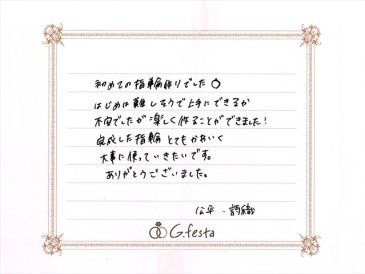 初めての指輪作りでした
はじめは難しそうで上手にできるか
不安でしたが楽しく作ることができました!
完成した指輪とてもかわいく
大事に使っていきたいです。
ありがとうございました。
公平・詩織
G.festa